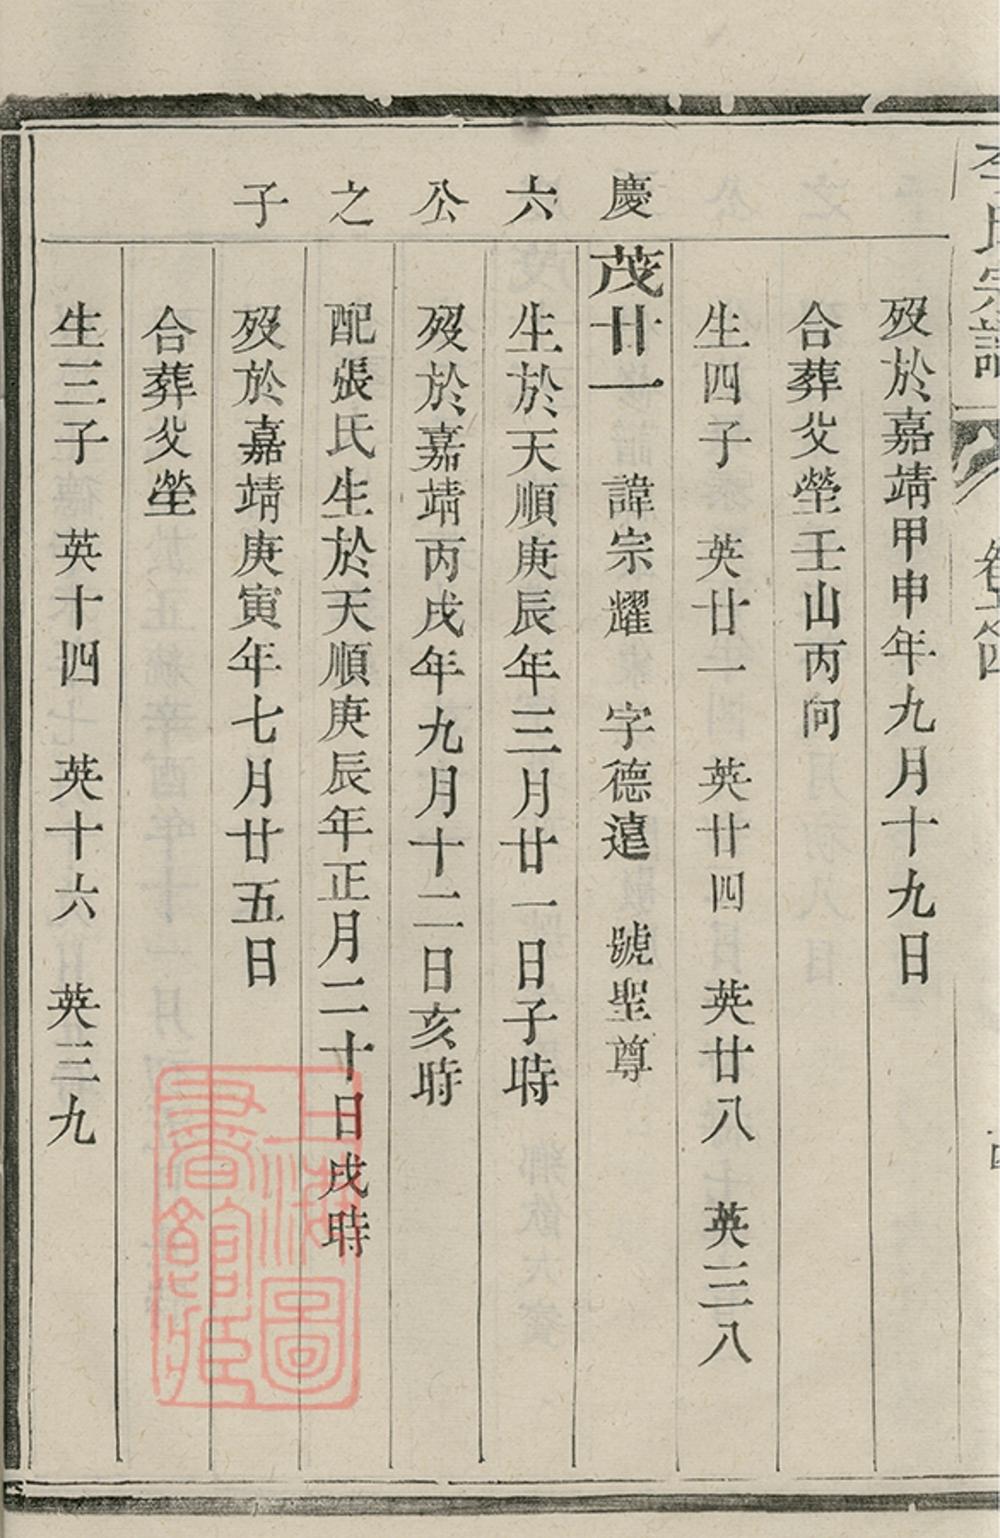 李氏宗譜
歿於嘉靖甲申年九月十九日
合葬父塋壬山丙向
生四子 英廿一 英廿四 英廿八 英三八
慶六公之子
茂廿一 諱宗耀 字德遠 號聖尊
生於天順庚辰年三月廿一日子時
歿於嘉靖丙戌年九月十二日亥時
配張氏生於天順庚辰年正月二十日戌時
歿於嘉靖庚寅年七月廿五日
合葬父塋
生三子 英十四 英十六 英三九
上海圖書館藏